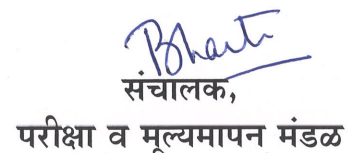 Bharti
संचालक,
परीक्षा व मूल्यमापन मंडळ